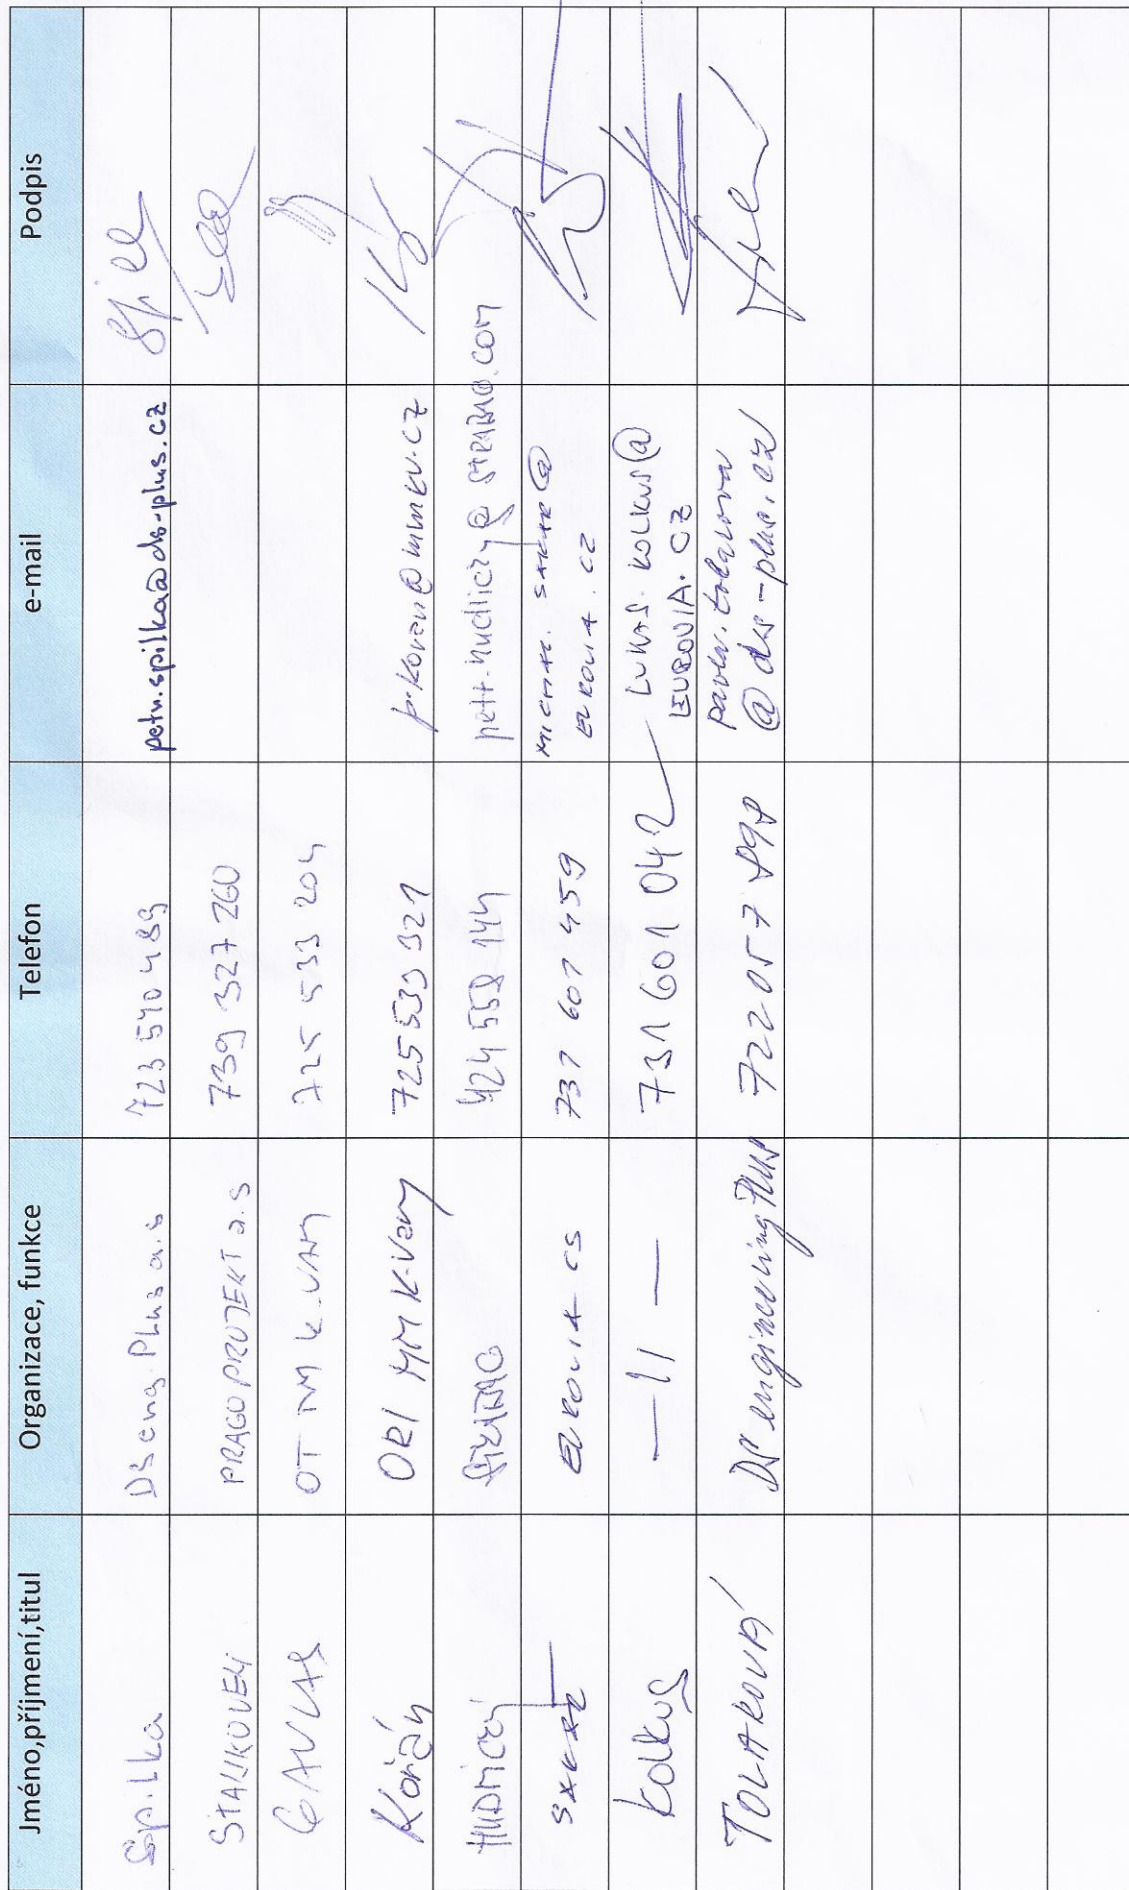 Jméno,příjmení,titul Organizace, funkce Telefon e-mail Podpis
Spilka DSeng. Plus a.s 723 540 489 petr.spilka@ds-plus.cz
PRAGOPROJEKT a.s 739 327 260
OT MM K.VARY 725 533 204
Kořán ORI MM K.Vary 725 533 321 p.koran@mmkv.cz
STRABAG 424 558 144 petr.hudliczy@STRABAG.COM
EUROVIA CS 737 601 459
EUROVIA.CZ
Kolkus —11— 731 601 042 LUKAS.KOLKUS@
EUROVIA.CZ
TOLAROVÁ DS engineering Plus 722 057 898 pavla.tolarova
@ds-plus.cz